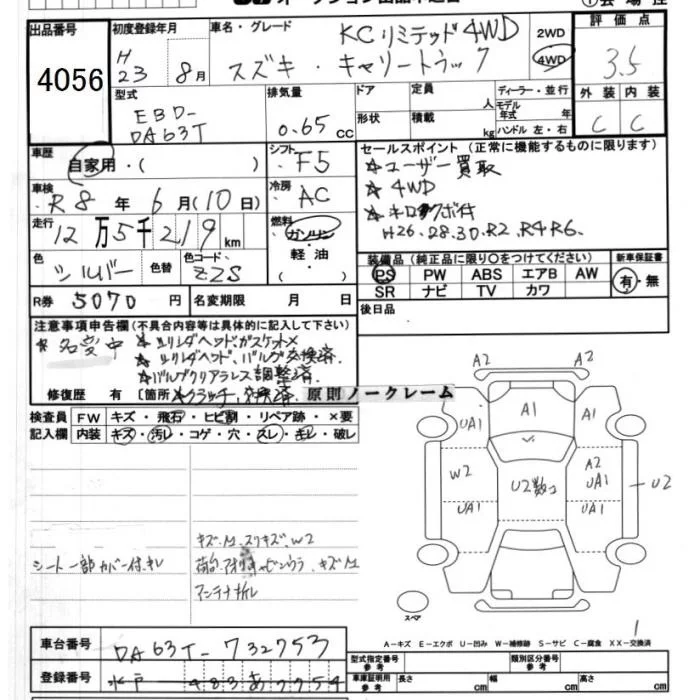 オークション出品申込書
出品番号
4056
初度登録年月
H23 8月
車名・グレード
KCリミテッド4WD
スズキ・キャリートラック
2WD
4WD
評価点
3.5
外装 内装
C C
型式
EBD-
DA63T
排気量
0.65 cc
ドア
形状
定員 人
積載 kg
ディーラー・並行
モデル年式 年
ハンドル 左・右
車歴
自家用・( )
シフト
F5
セールスポイント(正常に機能するものに限ります)
☆ユーザー買取
☆4WD
H26.28.30.R2.R4R6.
車検
R8年 6月(10日)
冷房
AC
走行
12万5千219km
燃料
ガソリン
軽油
( )
色
シルバー
色替
色コード
Z2S
装備品(純正品に限り○をつけてください)
PS PW ABS エアB AW
SR ナビ TV カワ
新車保証書
有・無
R券 5070円
名変期限 月 日
後日品
注意事項申告欄(不具合内容等は具体的に記入して下さい)
*名変中 ☆シリンダヘッドガスケット×
☆シリンダヘッド、バルブ交換済.
☆バルブクリアランス調整済.
修復歴 有[箇所 ☆クラッチ交換済. 原則ノークレーム
検査員 FW キズ・飛石・ヒビ割・リペア跡・×要
記入欄 内装 キズ・汚レ・コゲ・穴・スレ・キレ・破レ
キズ.M.スリキズ.W2
シート一部カバー付.キレ
キズM
アンテナ折レ
A2 A2
UA1 A1 UA1
W2 U2数コ A2 UA1 U2
UA1 UA1
スペア
1
A－キズ E－エクボ U－凹み W－補修跡 S－サビ C－腐食 XX－交換済
車台番号 DA63T-732753
登録番号 水戸 483あ7754
型式指定番号 参考
類別区分番号 参考
車庫証明用 参考 長さ cm 幅 cm 高さ cm